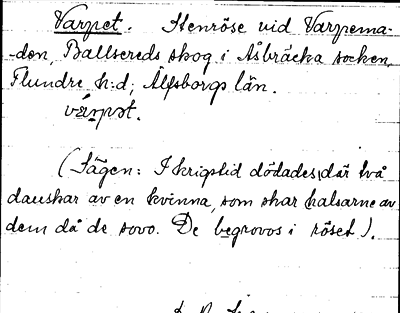 Varpet. Stenröse vid Varpema-
don, Ballsereds skog i Åsbräcka socken,
Flundre h:d; Älfsborgs län.
várpət.
(Sägen: I krigstid dödades där två
danskar av en kvinna, som skar halsarne av
dem då de sovo. De begrovos i röset).